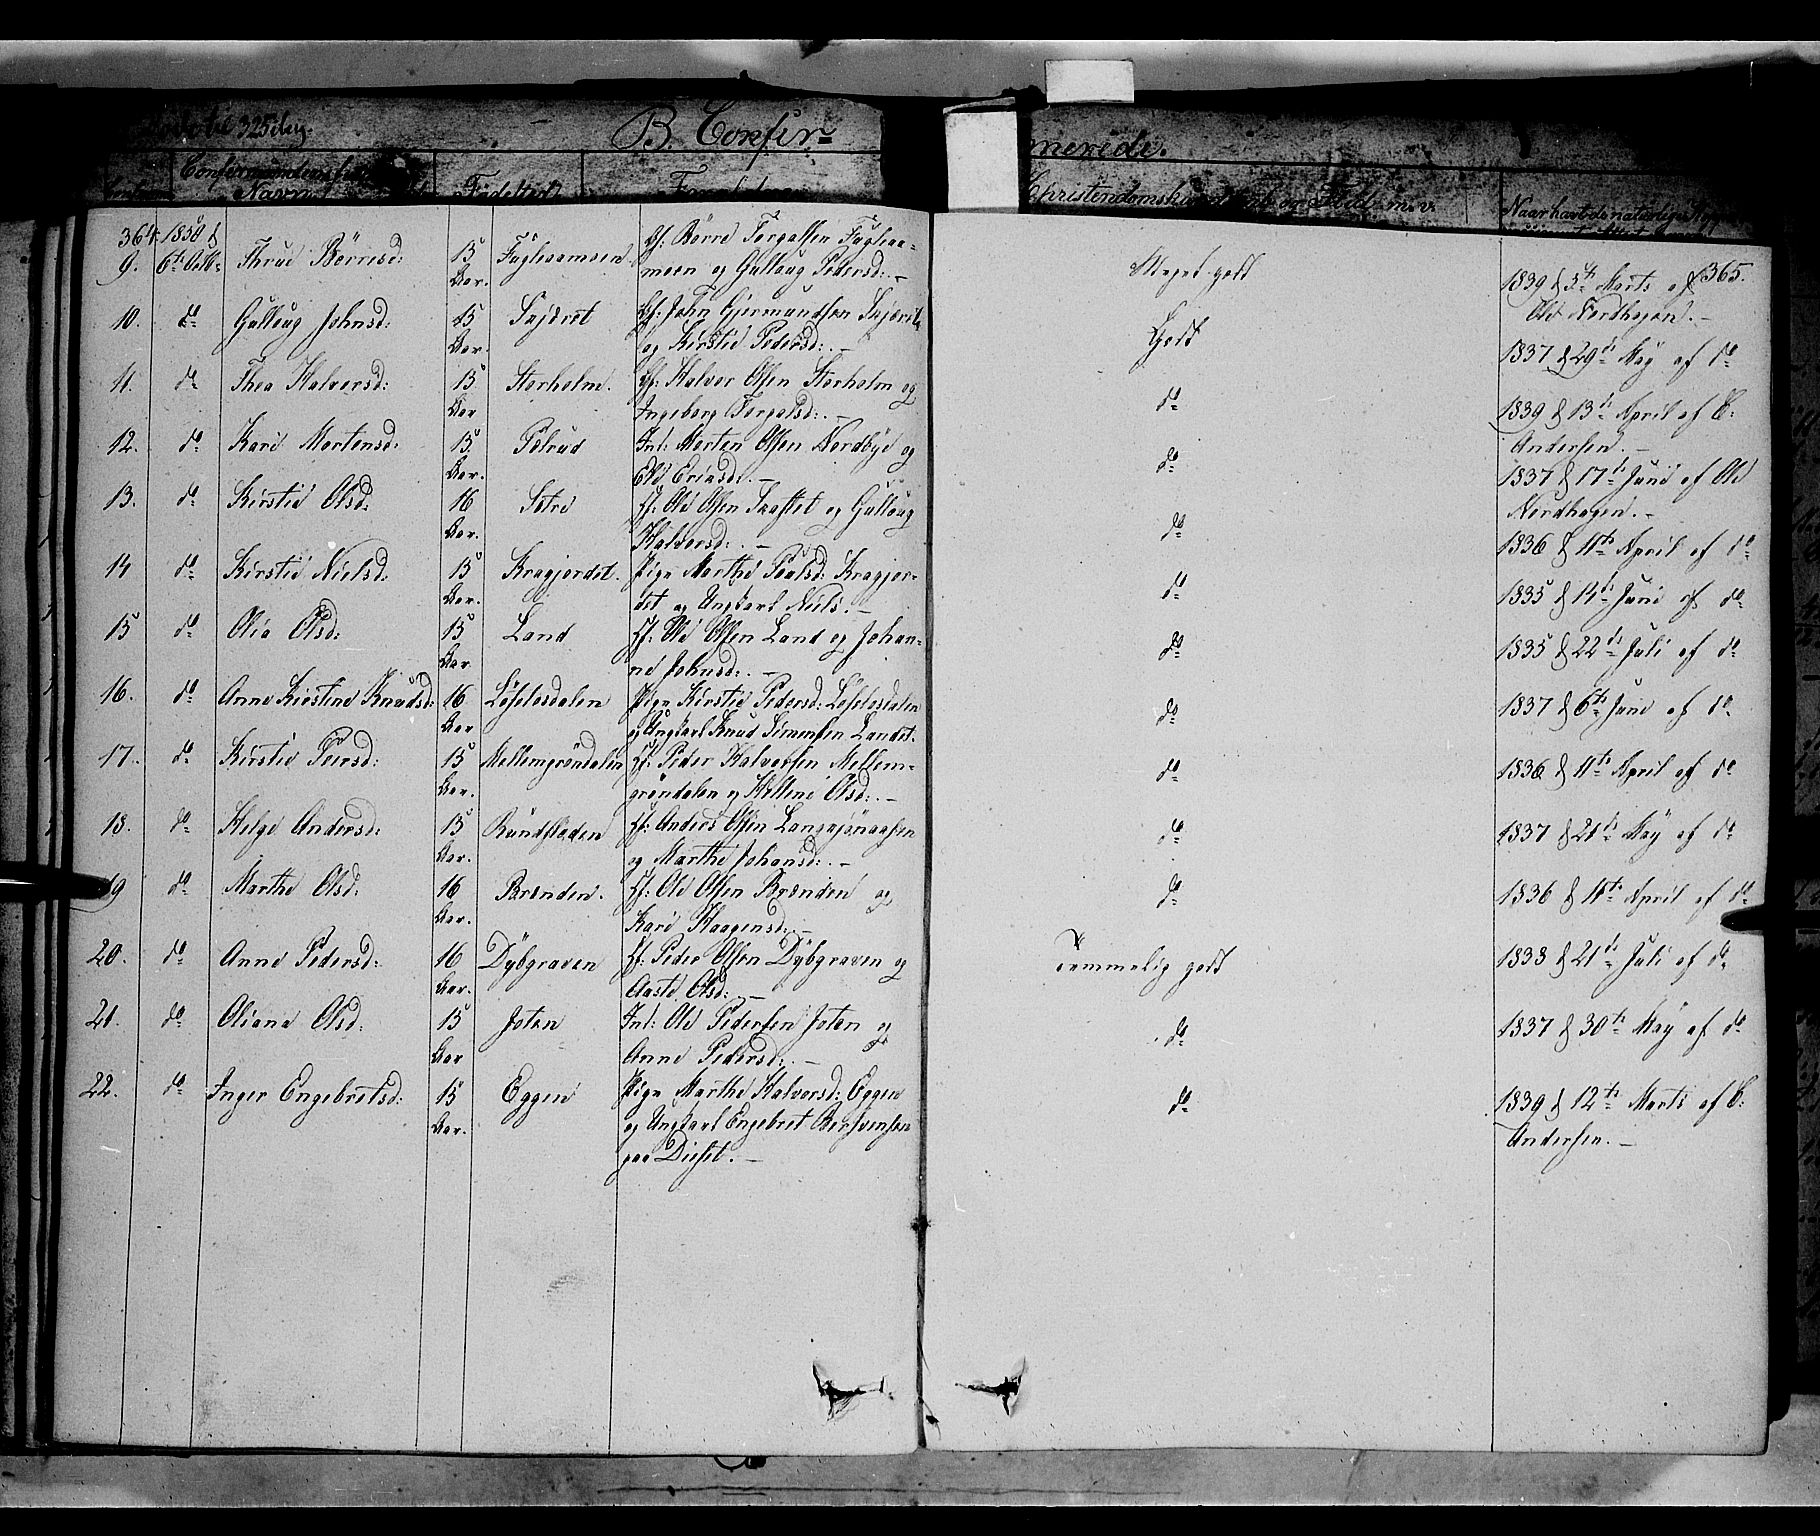 B. Confir-
merede.
Navn
Fødested
364.
1850 d
365.
9. 6te Octb- Thrud Børresd: 15 Aar. Fugleaamoen Gf: Børre Torgalsen Fugleaa-
moen og Gullaug Pedersd: - Meget godt 1839 d 5te Marts af
Ole Nordhagen. -
10. do Gullaug Johnsd: 15 Aar. Gf: John Gjermundsen
og Kirstie Pedersd: - Godt 1837 d 29de May af do
11. do Thea Halvorsd: 15 Aar Storholm. Gf: Halvor Olsen Storholm og
Ingeborg Torgalsd: - do 1839 d 13de April af C:
Andersen. -
12. do Kari Mortensd: 15 Aar. Pølrud Inl: Morten Olsen Nordbye og
Eli Eriksd: - do 1837 d 17de Juni af Ole
Nordhagen. -
13. do Kirstie Olsd: 16 Aar. Sætre Gf: Ole Olsen og Gullaug
Halvorsd: - do 1836 d 11te April af do
14 do Kirstie Nielsd: 15 Aar. Kragjordet. Pige Marthe Poulsd: Kragjor-
det og Ungkarl Niels. - do 1835 d 14de Juni af do
15 do Olia Olsd: 15 Aar. Land Gf: Ole Olsen Land og Johan-
ne Johnsd: - do 1835 d 22de Juli af do
16. do Anne Kirstine Knudsd: 16 Aar Løsetdalen Pige Kirstie Pedersd: Løsetdalen
og Ungkarl Knud Simensen Landet. do 1837 d 6te Juni af do
17. do Kirstie Peersd: 15 Aar. Mellemgrøndalen Gf: Peder Halvorsen Mellem-
grøndalen og Helene Olsd: - do 1836 d 11te April af do
18. do Helge Andersd: 15 Aar. Rundfloden Gf: Anders Olsen
og Marthe Johansd: - do 1837 d 21de May af do
19 do Marthe Olsd: 16 Aar. Brenden. Gf: Ole Olsen Brenden og
Kari Haagensd: - do 1836 d 11te April af do
20. do Anne Pedersd: 16 Aar. Dybgraven Gf: Peder Olsen Dybgraven og
Aaste Olsd: - temmelig godt 1833 d 21de Juli af do
21. do Oliana Olsd: 15 Aar Joten Inl: Ole Pedersen Joten og
Anne Pedersd: - do 1837 d 30te May af do
22. do Inger Engebretsd: 15 Aar. Eggen Pige Marthe Halvorsd: Eggen
og Ungkarl Engebret Bersvensen
paa Diset. - do 1839 d 12te Marts af C:
Andersen. -